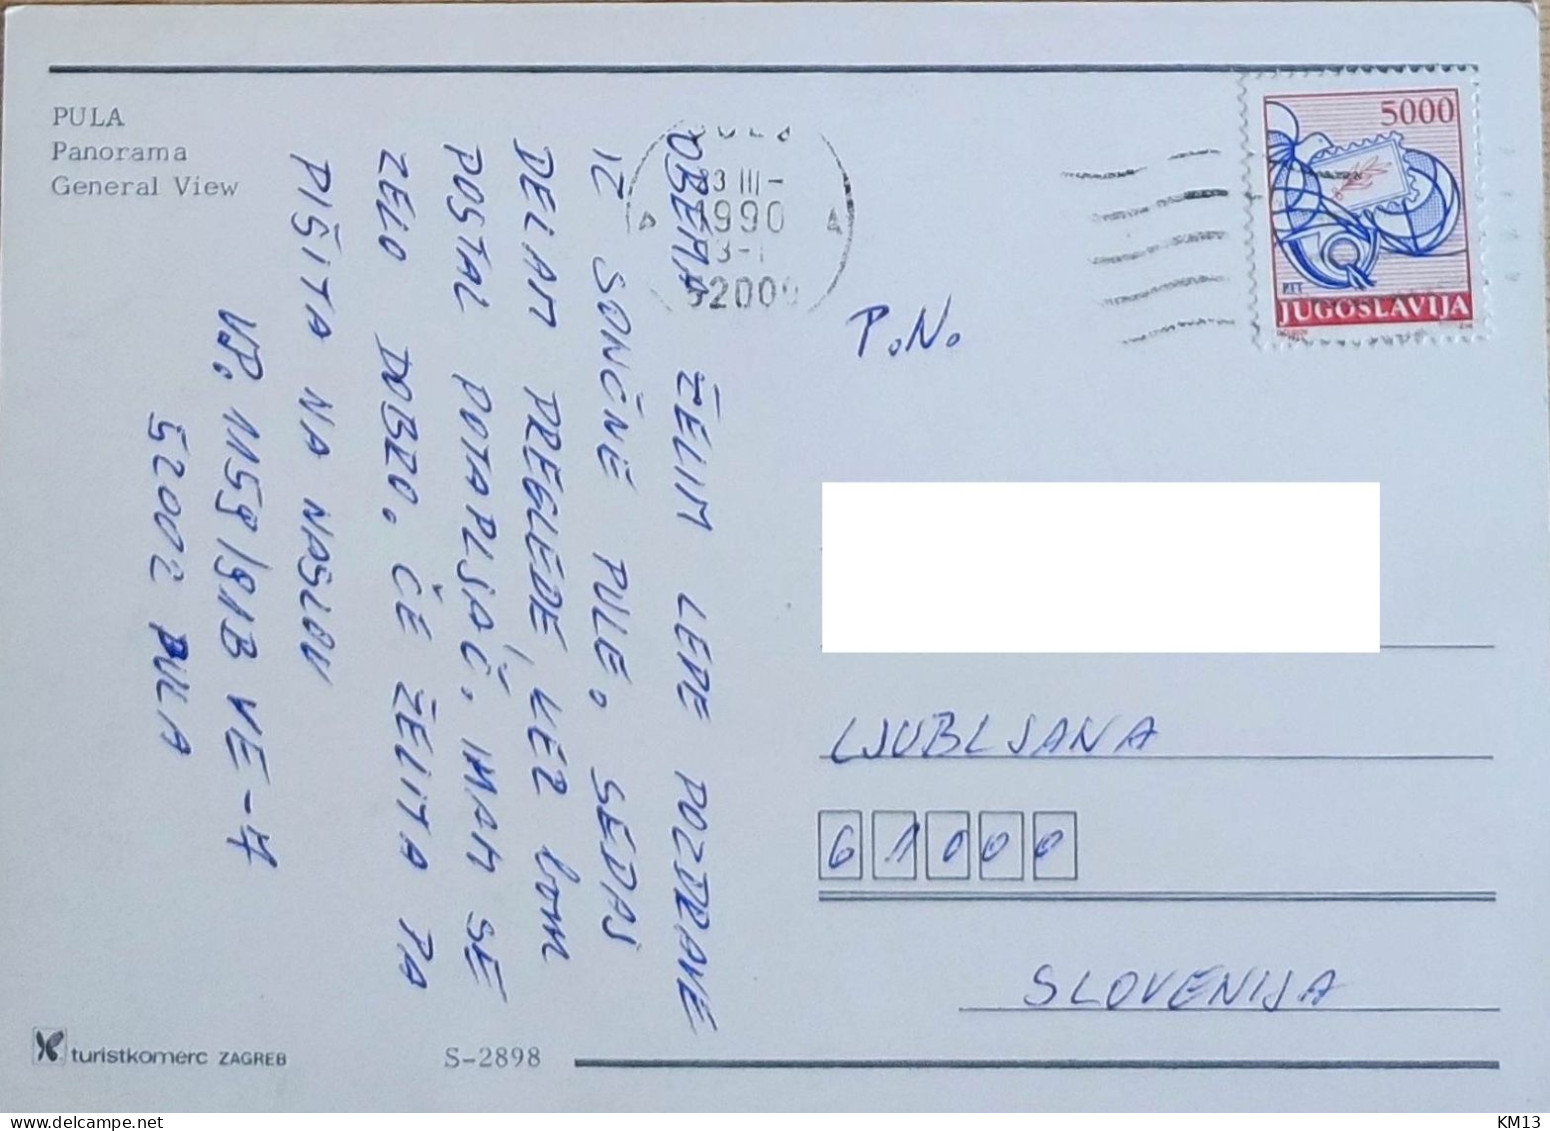 PULA
Panorama
General View
PULA
3 III-
1990
52000
5000
PTT
JUGOSLAVIJA
OBEMA ŽELIM LEPE POZDRAVE
IZ SONČNE PULE. SEDAJ
DELAM PREGLEDE, KER bom
POSTAL POTAPLJAČ. IMAM SE
ZELO DOBRO. ČE ŽELITA PA
PIŠITA NA NASLOV
V.P. 1159/91B VE-7
52002 PULA
P.N.
LJUBLJANA
61000
SLOVENIJA
turistkomerc ZAGREB
S-2898
www.delcampe.net
KM13